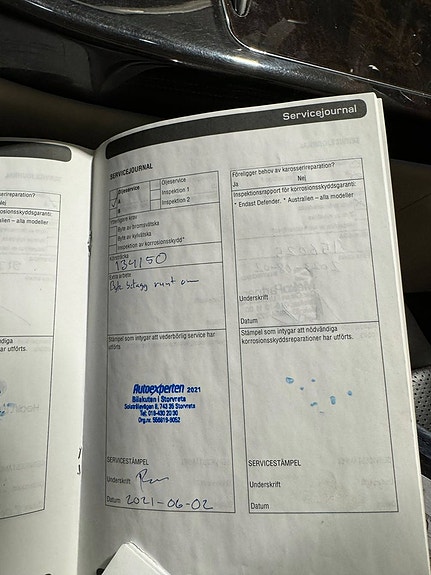 Servicejournal
SERVICEJOURNAL
Oljeservice
A
B
Oljeservice
Inspektion 1
Inspektion 2
Ytterligare krav
Byte av bromsvätska
Byte av kylvätska
Inspektion av korrosionsskydd*
134150
Extra arbete
Byte belägg runt om
Stämpel som intygar att vederbörlig service har
utförts.
Autoexperten 2021
Bilakuten i Storvreta
Tel: 018-430 20 30
SERVICESTÄMPEL
Underskrift
Datum 2021-06-02
Föreligger behov av karosserireparation?
Ja Nej
Inspektionsrapport för korrosionsskyddsgaranti:
* Endast Defender. * Australien – alla modeller
Underskrift
Datum
Stämpel som intygar att nödvändiga
korrosionsskyddsreparationer har utförts.
SERVICESTÄMPEL
Underskrift
Datum